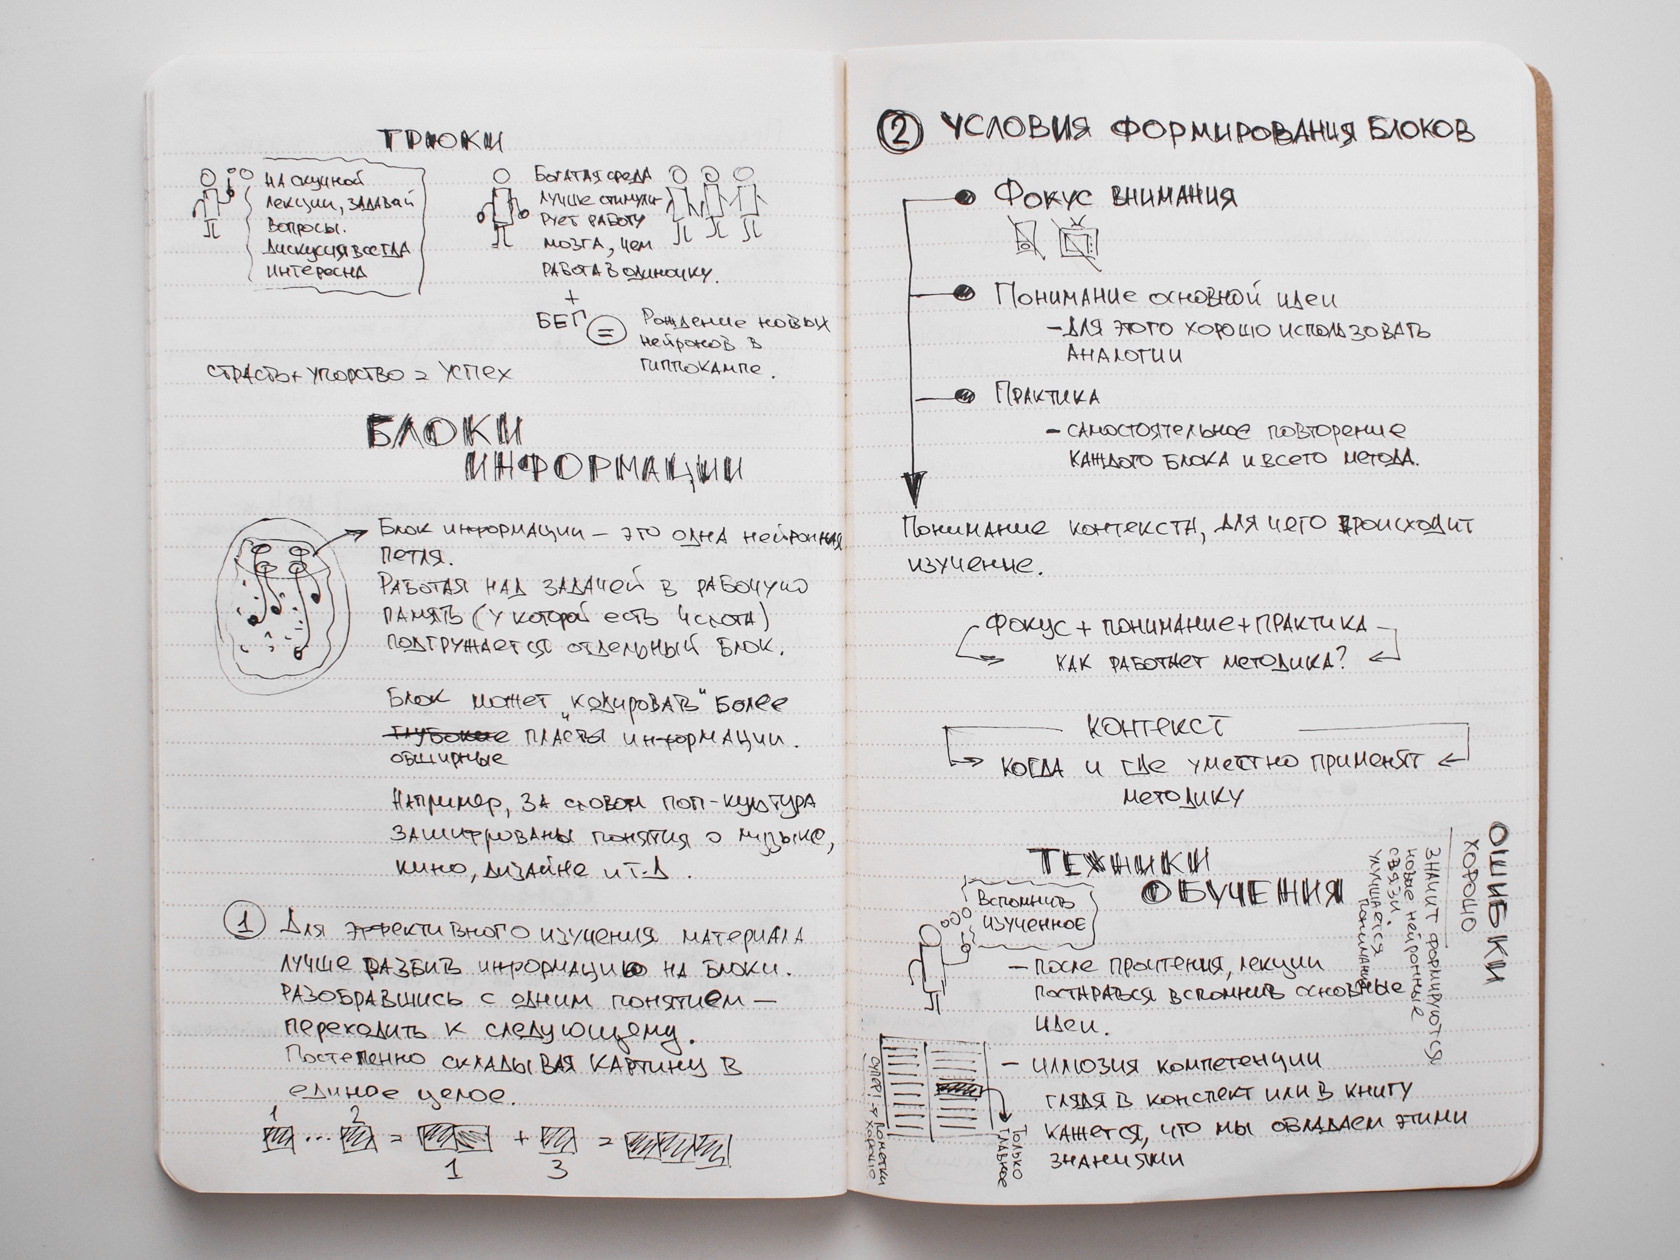 ТРЮКИ
НА скучной
лекции, задавай
вопросы.
Дискуссия всегда
интересна
Богатая среда
лучше стимули-
рует работу
мозга, чем
работа в одиночку.
+
БЕГ = Рождение новых
нейронов в
гиппокампе.
страсть + упорство = успех
БЛОКИ
ИНФОРМАЦИИ
Блок информации – это одна нейронная
петля.
Работая над задачей в рабочую
память (у которой есть 4 слота)
подгружается отдельный блок.
Блок может "кодировать" более
глубокие пласты информации.
обширные
Например, за словом поп-культура
зашифрованы понятия о музыке,
кино, дизайне и т.д.
1 Для эффективного изучения материала
лучше разбить информацию на блоки.
Разобравшись с одним понятием –
переходить к следующему.
Постепенно складывая картину в
единое целое.
1 2
... = + =
1 3
2 УСЛОВИЯ ФОРМИРОВАНИЯ БЛОКОВ
Фокус внимания
Понимание основной идеи
– для этого хорошо использовать
аналогии
Практика
– самостоятельное повторение
каждого блока и всего метода.
Понимание контекста, для чего происходит
изучение.
Фокус + понимание + практика
как работает методика?
контекст
когда и где уместно применят
методику
ОШИБКИ
ХОРОШО
Значит формируются
новые нейронные
связи.
улучшается
понимание
ТЕХНИКИ
ОБУЧЕНИЯ
Вспомнить
изученное
– после прочтения, лекции
постараться вспомнить основные
идеи.
– иллюзия компетенции
глядя в конспект или в книгу
кажется, что мы обладаем этими
знаниями
супер! + пометки
хорошо
только
главное